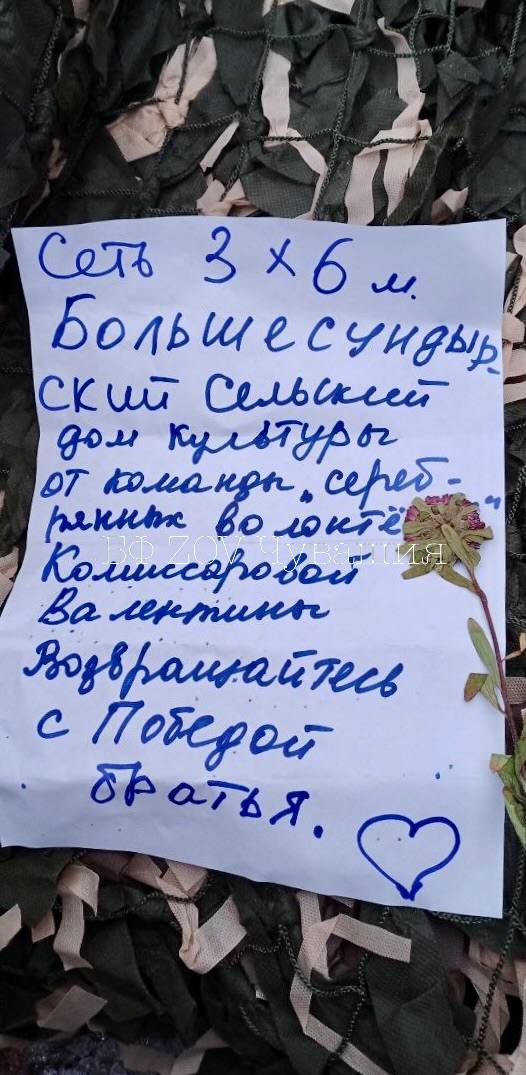 Сеть 3 х 6 м.
Большесундыр-
ский Сельский
дом культуры
от команды „сереб-
рянных волонтё
БФ ZOV Чувашия
Комиссаровой
Валентины
Возвращайтесь
с Победой
братья.